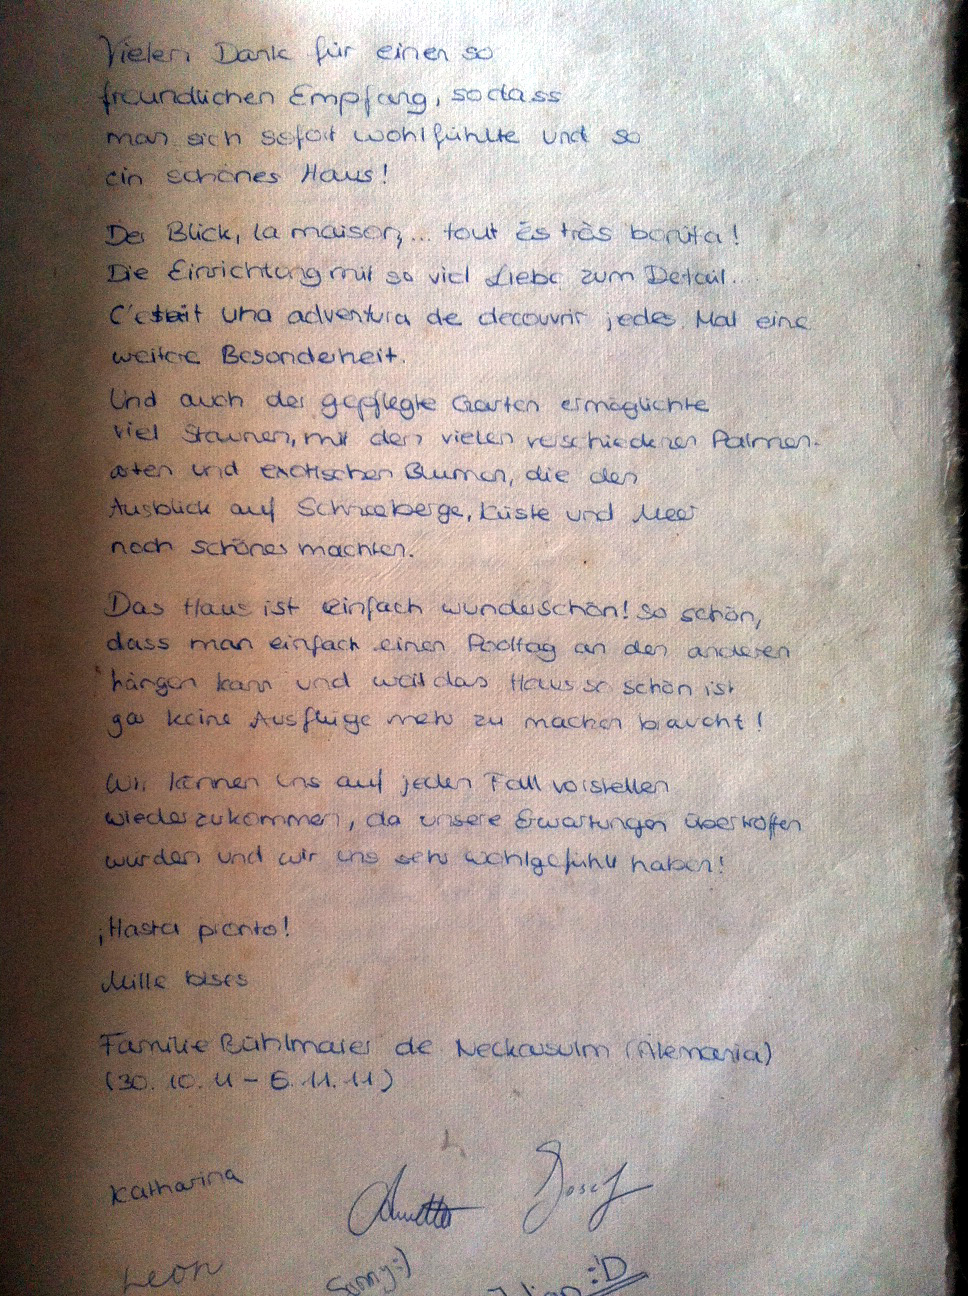 Vielen Dank für einen so
freundlichen Empfang, sodass
man sich sofort wohlfühlte und so
ein schönes Haus!
Der Blick, la maison,... tout és très bonita!
Die Einrichtung mit so viel Liebe zum Detail...
C'était una adventura de decouvrir jedes Mal eine
weitere Besonderheit.
Und auch der gepflegte Garten ermöglichte
viel Staunen, mit den vielen verschiedenen Palmen-
arten und exotischen Blumen, die den
Ausblick auf Schneeberge, Küste und Meer
noch schöner machten.
Das Haus ist einfach wunderschön! So schön,
dass man einfach einen Pooltag an den anderen
hängen kann und weil das Haus so schön ist
gar keine Ausflüge mehr zu machen braucht!
Wir können uns auf jeden Fall vorstellen
wiederzukommen, da unsere Erwartungen übertroffen
wurden und wir uns sehr wohlgefühlt haben!
¡Hasta pronto!
Mille bises
Familie Bühlmaier de Neckarsulm (Alemania)
(30.10.11 - 6.11.11)
Katharina
Annette Josef
Leon Sunny:) :D